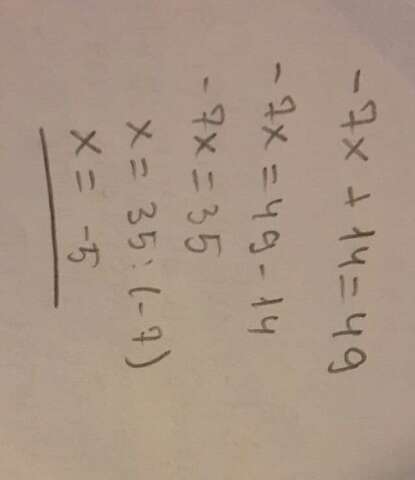 -7x + 14 = 49
-7x = 49 - 14
-7x = 35
x = 35 : (-7)
x = -5